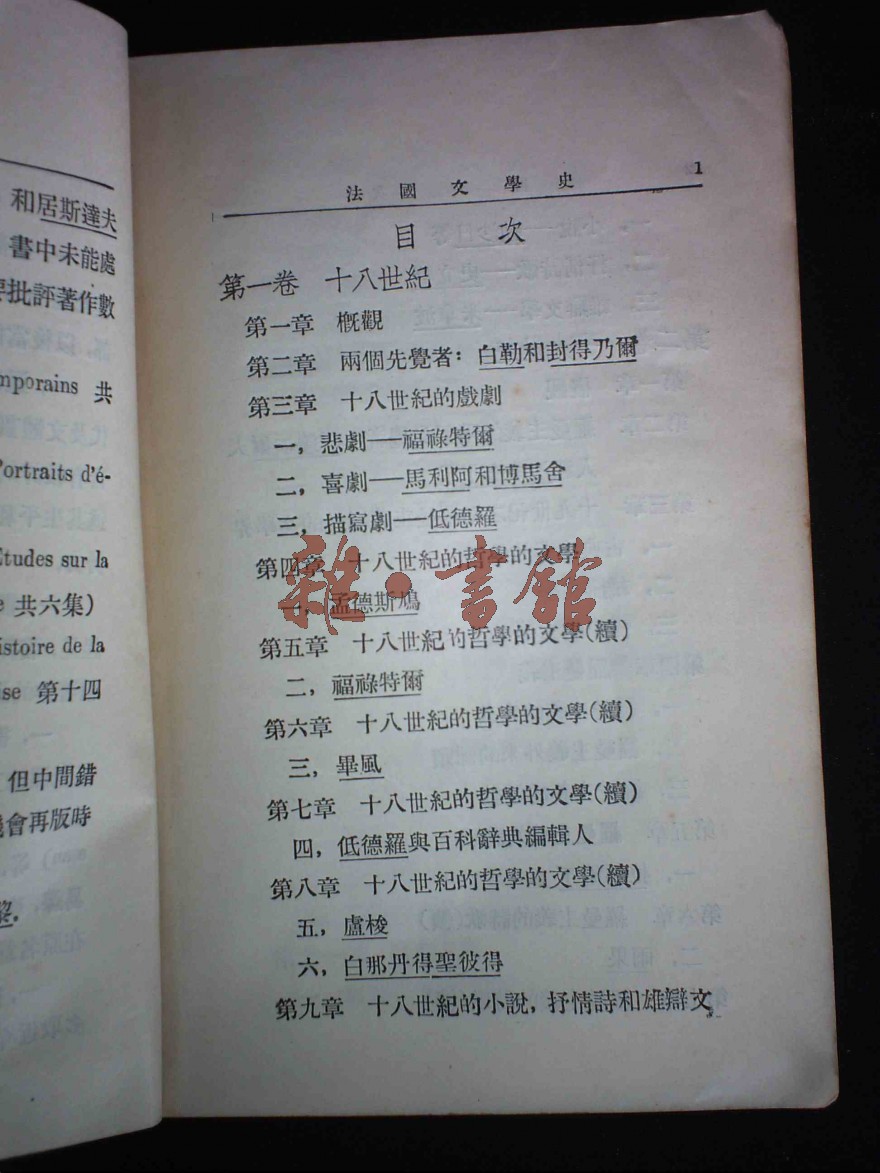 和居斯達夫
書中未能處
批評著作數
mporains 共
Portraits d'é-
Etudes sur la
e 共六集)
istoire de la
ise 第十四
但中間錯
會再版時
黎.
法國文學史 1
目次
第一卷 十八世紀
第一章 概觀
第二章 兩個先覺者: 白勒和封得乃爾
第三章 十八世紀的戲劇
一, 悲劇——福祿特爾
二, 喜劇——馬利阿和博馬舍
三, 描寫劇——低德羅
第四章 十八世紀的哲學的文學
一, 孟德斯鳩
第五章 十八世紀的哲學的文學(續)
二, 福祿特爾
第六章 十八世紀的哲學的文學(續)
三, 畢風
第七章 十八世紀的哲學的文學(續)
四, 低德羅與百科辭典編輯人
第八章 十八世紀的哲學的文學(續)
五, 盧梭
六, 白那丹得聖彼得
第九章 十八世紀的小說, 抒情詩和雄辯文
雜·書館